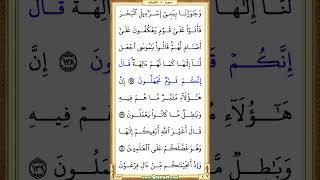 وَجَٰوَزْنَا بِبَنِىٓ إِسْرَٰٓءِيلَ ٱلْبَحْرَ
فَأَتَوْا۟ عَلَىٰ قَوْمٍ يَعْكُفُونَ عَلَىٰٓ
أَصْنَامٍ لَّهُمْ قَالُوا۟ يَٰمُوسَى ٱجْعَل
لَّنَآ إِلَٰهًا كَمَا لَهُمْ ءَالِهَةٌ قَالَ
إِنَّكُمْ قَوْمٌ تَجْهَلُونَ ١٣٨ إِنَّ
هَٰٓؤُلَآءِ مُتَبَّرٌ مَّا هُمْ فِيهِ
وَبَٰطِلٌ مَّا كَانُوا۟ يَعْمَلُونَ ١٣٩
قَالَ أَغَيْرَ ٱللَّهِ أَبْغِيكُمْ إِلَٰهًا
وَهُوَ فَضَّلَكُمْ عَلَى ٱلْعَٰلَمِينَ ١٤٠
وَإِذْ أَنجَيْنَٰكُم مِّنْ ءَالِ فِرْعَوْنَ